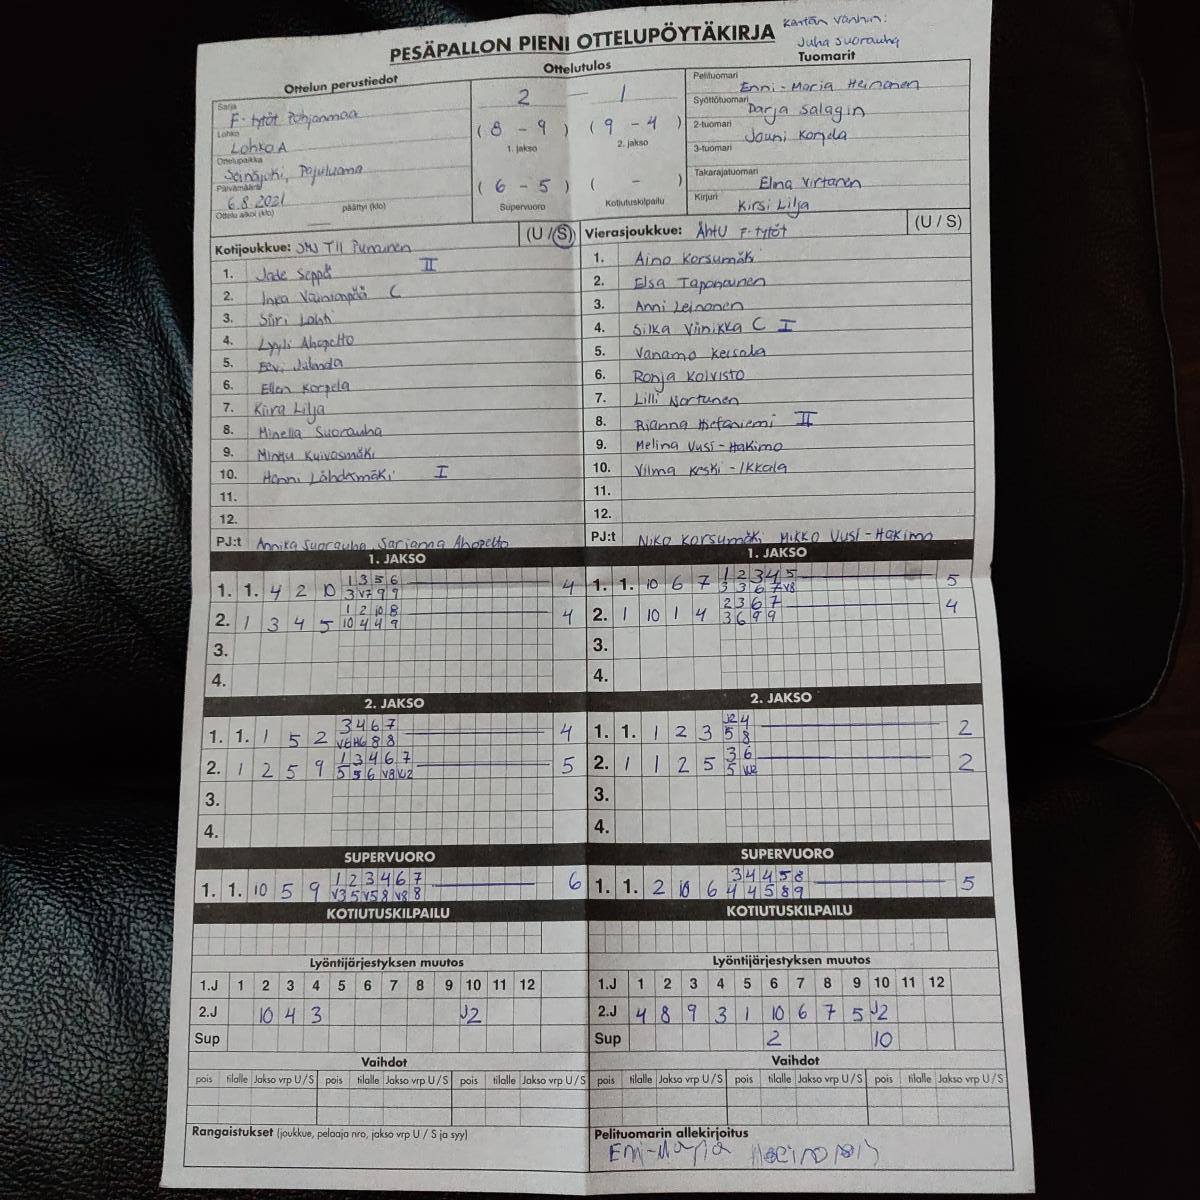 PESÄPALLON PIENI OTTELUPÖYTÄKIRJA
Kentän vanhin:
Juha Suorauha
Ottelun perustiedot
Ottelutulos
Tuomarit
Sarja
F-tytöt Pohjanmaa
Lohko
Lohko A
Ottelupaikka
Seinäjoki, Pajuluoma
Päivämäärä
6.8.2021
Ottelu alkoi (klo) päättyi (klo)
2 - 1
(8 - 9) (9 - 4)
1. jakso 2. jakso
(6 - 5) ( - )
Supervuoro Kotiutuskilpailu
Pelituomari
Enni-Maria Heinonen
Syöttötuomari
Darja Salagin
2-tuomari
Jouni Korpela
3-tuomari
Takarajatuomari
Elina Virtanen
Kirjuri
Kirsi Lilja
Kotijoukkue: JMJ T11 Punainen (U / S)
1. Jade Seppä II
2. Inka Väinionpää C
3. Siiri Lahti
4. Lyyli Ahopelto
5. Eevi
6. Ellen Korpela
7. Kiira Lilja
8. Minella Suorauha
9. Minttu Kuivasmäki
10. Hanni Lähdesmäki I
11.
12.
PJ:t Annika Suorauha, Sarianna Ahopelto
Vierasjoukkue: ÄhtU F-tytöt (U / S)
1. Aino Korsumäki
2. Elsa Taponainen
3. Anni Leinonen
4. Silka Viinikka C I
5. Vanamo Keisala
6. Ronja Koivisto
7. Lilli Nortunen
8. Rianna Hietaniemi II
9. Melina Uusi-Hakimo
10. Vilma Keski-Ikkala
11.
12.
PJ:t Niko Korsumäki Mikko Uusi-Hakimo
1. JAKSO
1 3 5 6
1. 1. 4 2 10 3 V7 9 9 4
1 2 10 8
2. 1 3 4 5 10 4 4 9 4
3.
4.
1. JAKSO
1 2 3 4 5
1. 1. 10 6 7 3 3 6 7 V8 5
2 3 6 7
2. 1 10 1 4 3 6 9 9 4
3.
4.
2. JAKSO
3 4 6 7
1. 1. 1 5 2 V6 H6 8 8 4
1 3 4 6 7
2. 1 2 5 9 5 5 6 V8 V2 5
3.
4.
2. JAKSO
J2 4
1. 1. 1 2 3 5 8 2
3 6
2. 1 1 2 5 5 W2 2
3.
4.
SUPERVUORO
1 2 3 4 6 7
1. 1. 10 5 9 V3 5 V5 8 V8 8 6
SUPERVUORO
3 4 4 5 8
1. 1. 2 10 6 4 4 5 8 9 5
KOTIUTUSKILPAILU
KOTIUTUSKILPAILU
Lyöntijärjestyksen muutos
1.J 1 2 3 4 5 6 7 8 9 10 11 12
2.J 10 4 3 J2
Sup
Lyöntijärjestyksen muutos
1.J 1 2 3 4 5 6 7 8 9 10 11 12
2.J 4 8 9 3 1 10 6 7 5 J2
Sup 2 10
Vaihdot
pois tilalle Jakso vrp U / S pois tilalle Jakso vrp U / S pois tilalle Jakso vrp U / S
Vaihdot
pois tilalle Jakso vrp U / S pois tilalle Jakso vrp U / S pois tilalle Jakso vrp U / S
Rangaistukset (joukkue, pelaaja nro, jakso vrp U / S ja syy)
Pelituomarin allekirjoitus
Enni-Maria Heinonen